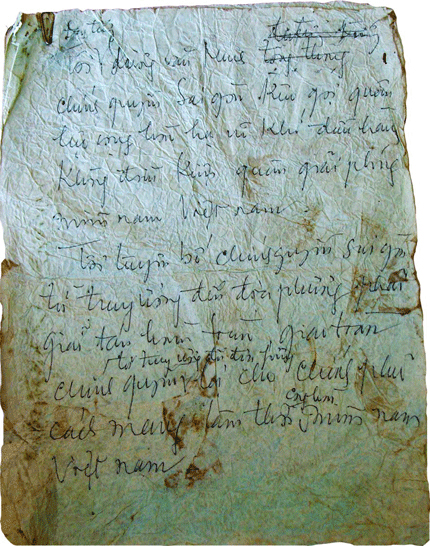 Đại tướng
Tôi Dương văn Minh tổng thống
chính quyền Sài gòn kêu gọi quân
lực cộng hòa hạ vũ khí đầu hàng
không điều kiện quân giải phóng
miền nam Việt nam.
Tôi tuyên bố chính quyền Sài gòn
từ trung ương đến địa phương phải
giải tán hoàn toàn giao toàn
từ trung ương đến địa phương
chính quyền lại cho chính phủ
cộng hòa
cách mạng lâm thời miền nam
Việt nam